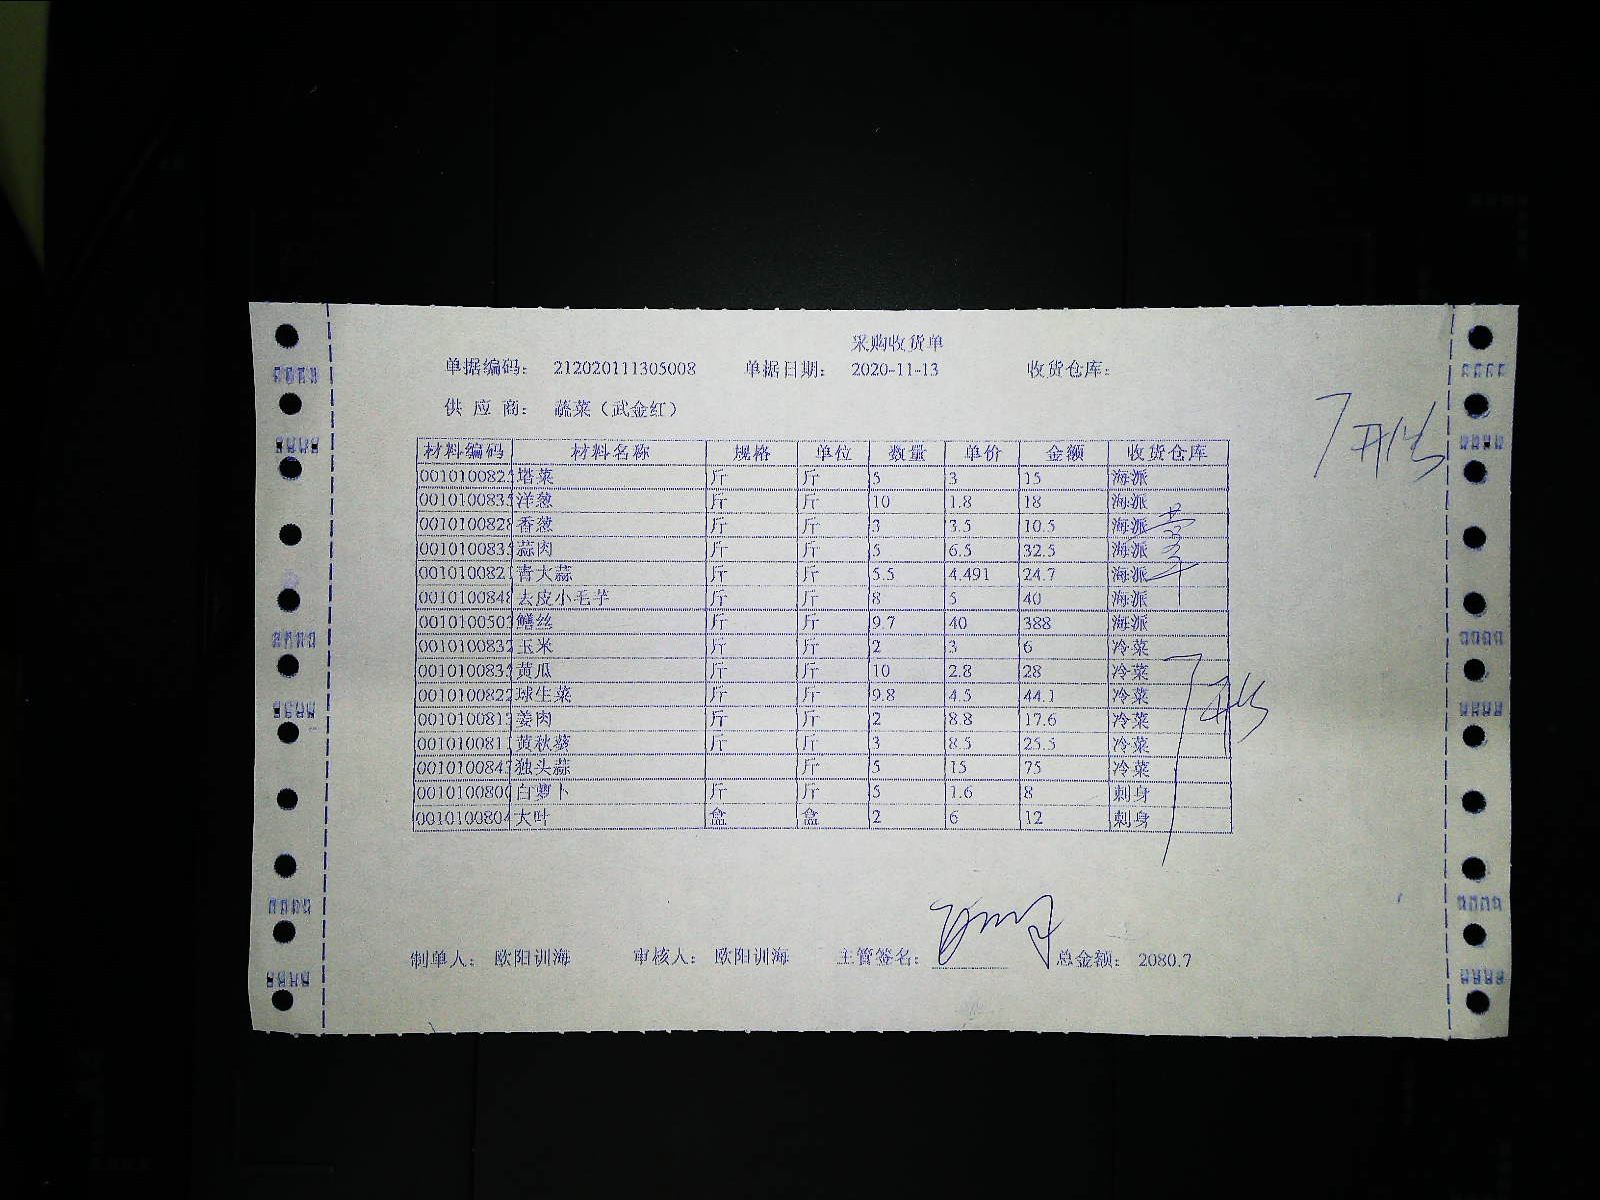 采购收货单
单据编码： 212020111305008 单据日期： 2020-11-13 收货仓库：
供 应 商： 蔬菜（武金红）
材料编码 材料名称 规格 单位 数量 单价 金额 收货仓库
001010082 塔菜 斤 斤 5 3 15 海派
001010083 洋葱 斤 斤 10 1.8 18 海派
0010100828 香葱 斤 斤 3 3.5 10.5 海派
001010083 蒜肉 斤 斤 5 6.5 32.5 海派
001010082 青大蒜 斤 斤 5.5 4.491 24.7 海派
0010100848 去皮小毛芋 斤 斤 8 5 40 海派
001010050 鳝丝 斤 斤 9.7 40 388 海派
0010100832 玉米 斤 斤 2 3 6 冷菜
001010083 黄瓜 斤 斤 10 2.8 28 冷菜
0010100822 球生菜 斤 斤 9.8 4.5 44.1 冷菜
001010081 姜肉 斤 斤 2 8.8 17.6 冷菜
001010081 黄秋葵 斤 斤 3 8.5 25.5 冷菜
001010084 独头蒜 斤 5 15 75 冷菜
0010100800 白萝卜 斤 斤 5 1.6 8 刺身
0010100804 大叶 盒 盒 2 6 12 刺身
制单人： 欧阳训海 审核人： 欧阳训海 主管签名： 总金额： 2080.7